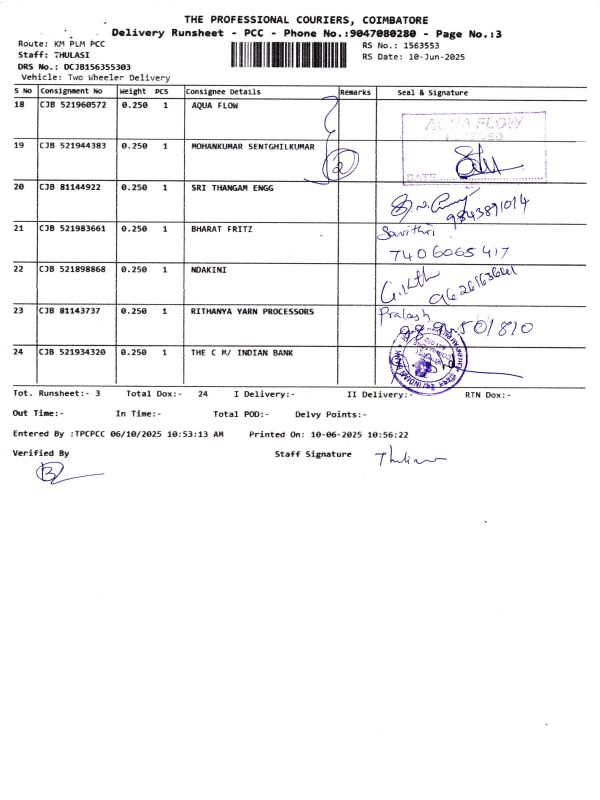 THE PROFESSIONAL COURIERS, COIMBATORE
Delivery Runsheet - PCC - Phone No.:9047080280 - Page No.:3
Route: KM PLM PCC
RS No.: 1563553
Staff: THULASI
RS Date: 10-Jun-2025
DRS No.: DCJB156355303
Vehicle: Two Wheeler Delivery
S No Consignment No Weight PCS Consignee Details Remarks Seal & Signature
18 CJB 521960572 0.250 1 AQUA FLOW
AQUA FLOW
19 CJB 521944383 0.250 1 MOHANKUMAR SENTGHILKUMAR
2
DATE
20 CJB 81144922 0.250 1 SRI THANGAM ENGG
9843891014
21 CJB 521983661 0.250 1 BHARAT FRITZ
Savithri
7406065417
22 CJB 521898868 0.250 1 NDAKINI
23 CJB 81143737 0.250 1 RITHANYA YARN PROCESSORS
Prakash
24 CJB 521934320 0.250 1 THE C M/ INDIAN BANK
Tot. Runsheet:- 3 Total Dox:- 24 I Delivery:- II Delivery:- RTN Dox:-
Out Time:- In Time:- Total POD:- Delvy Points:-
Entered By :TPCPCC 06/10/2025 10:53:13 AM Printed On: 10-06-2025 10:56:22
Verified By Staff Signature